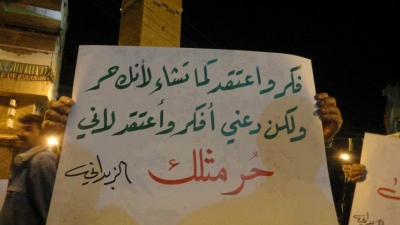 فكر واعتقد كما تشاء لأنك حر
ولكن دعني أفكر وأعتقد لاني
حُر مثلك
الزبداني